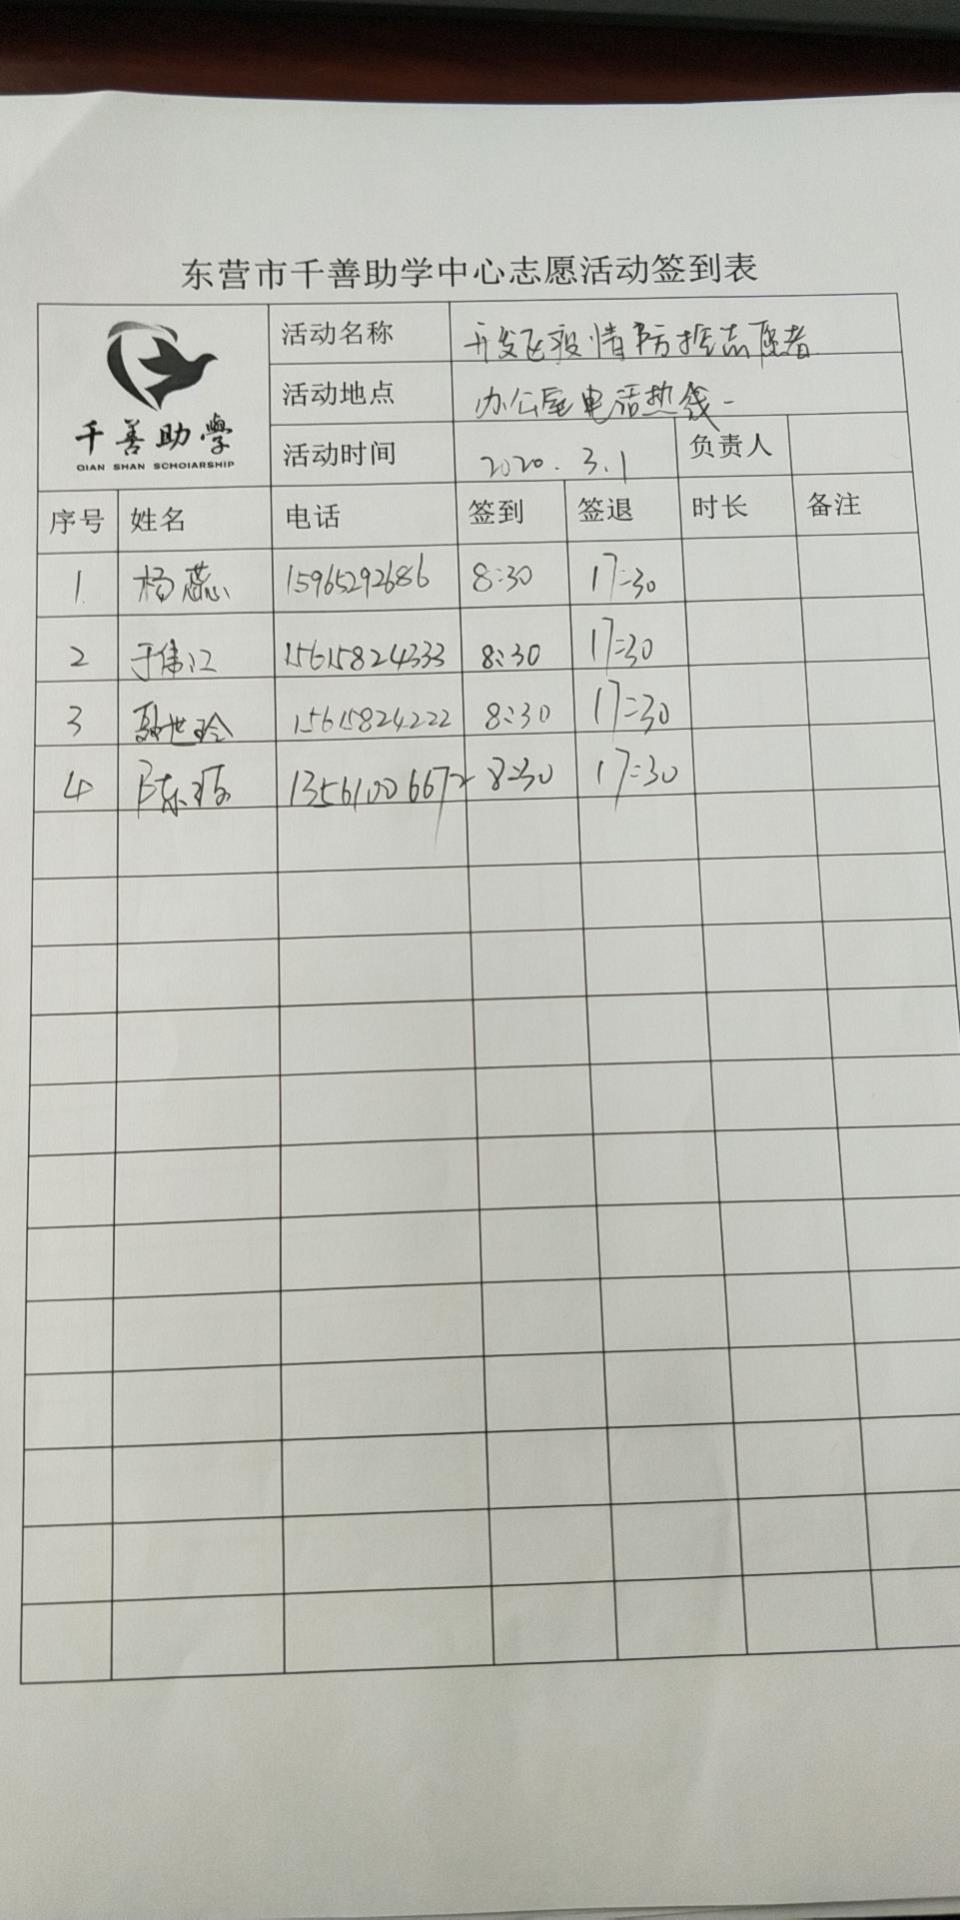 东营市千善助学中心志愿活动签到表
千善助學
QIAN SHAN SCHOIARSHIP
活动名称 开发区疫情防控志愿者
活动地点 办公室电话热线
活动时间 2020.3.1 负责人
序号 姓名 电话 签到 签退 时长 备注
1 杨蕊 15965292686 8:30 17:30
2 于伟江 15615824333 8:30 17:30
3 聂世玲 15615824222 8:30 17:30
4 陈 13561006672 8:30 17:30